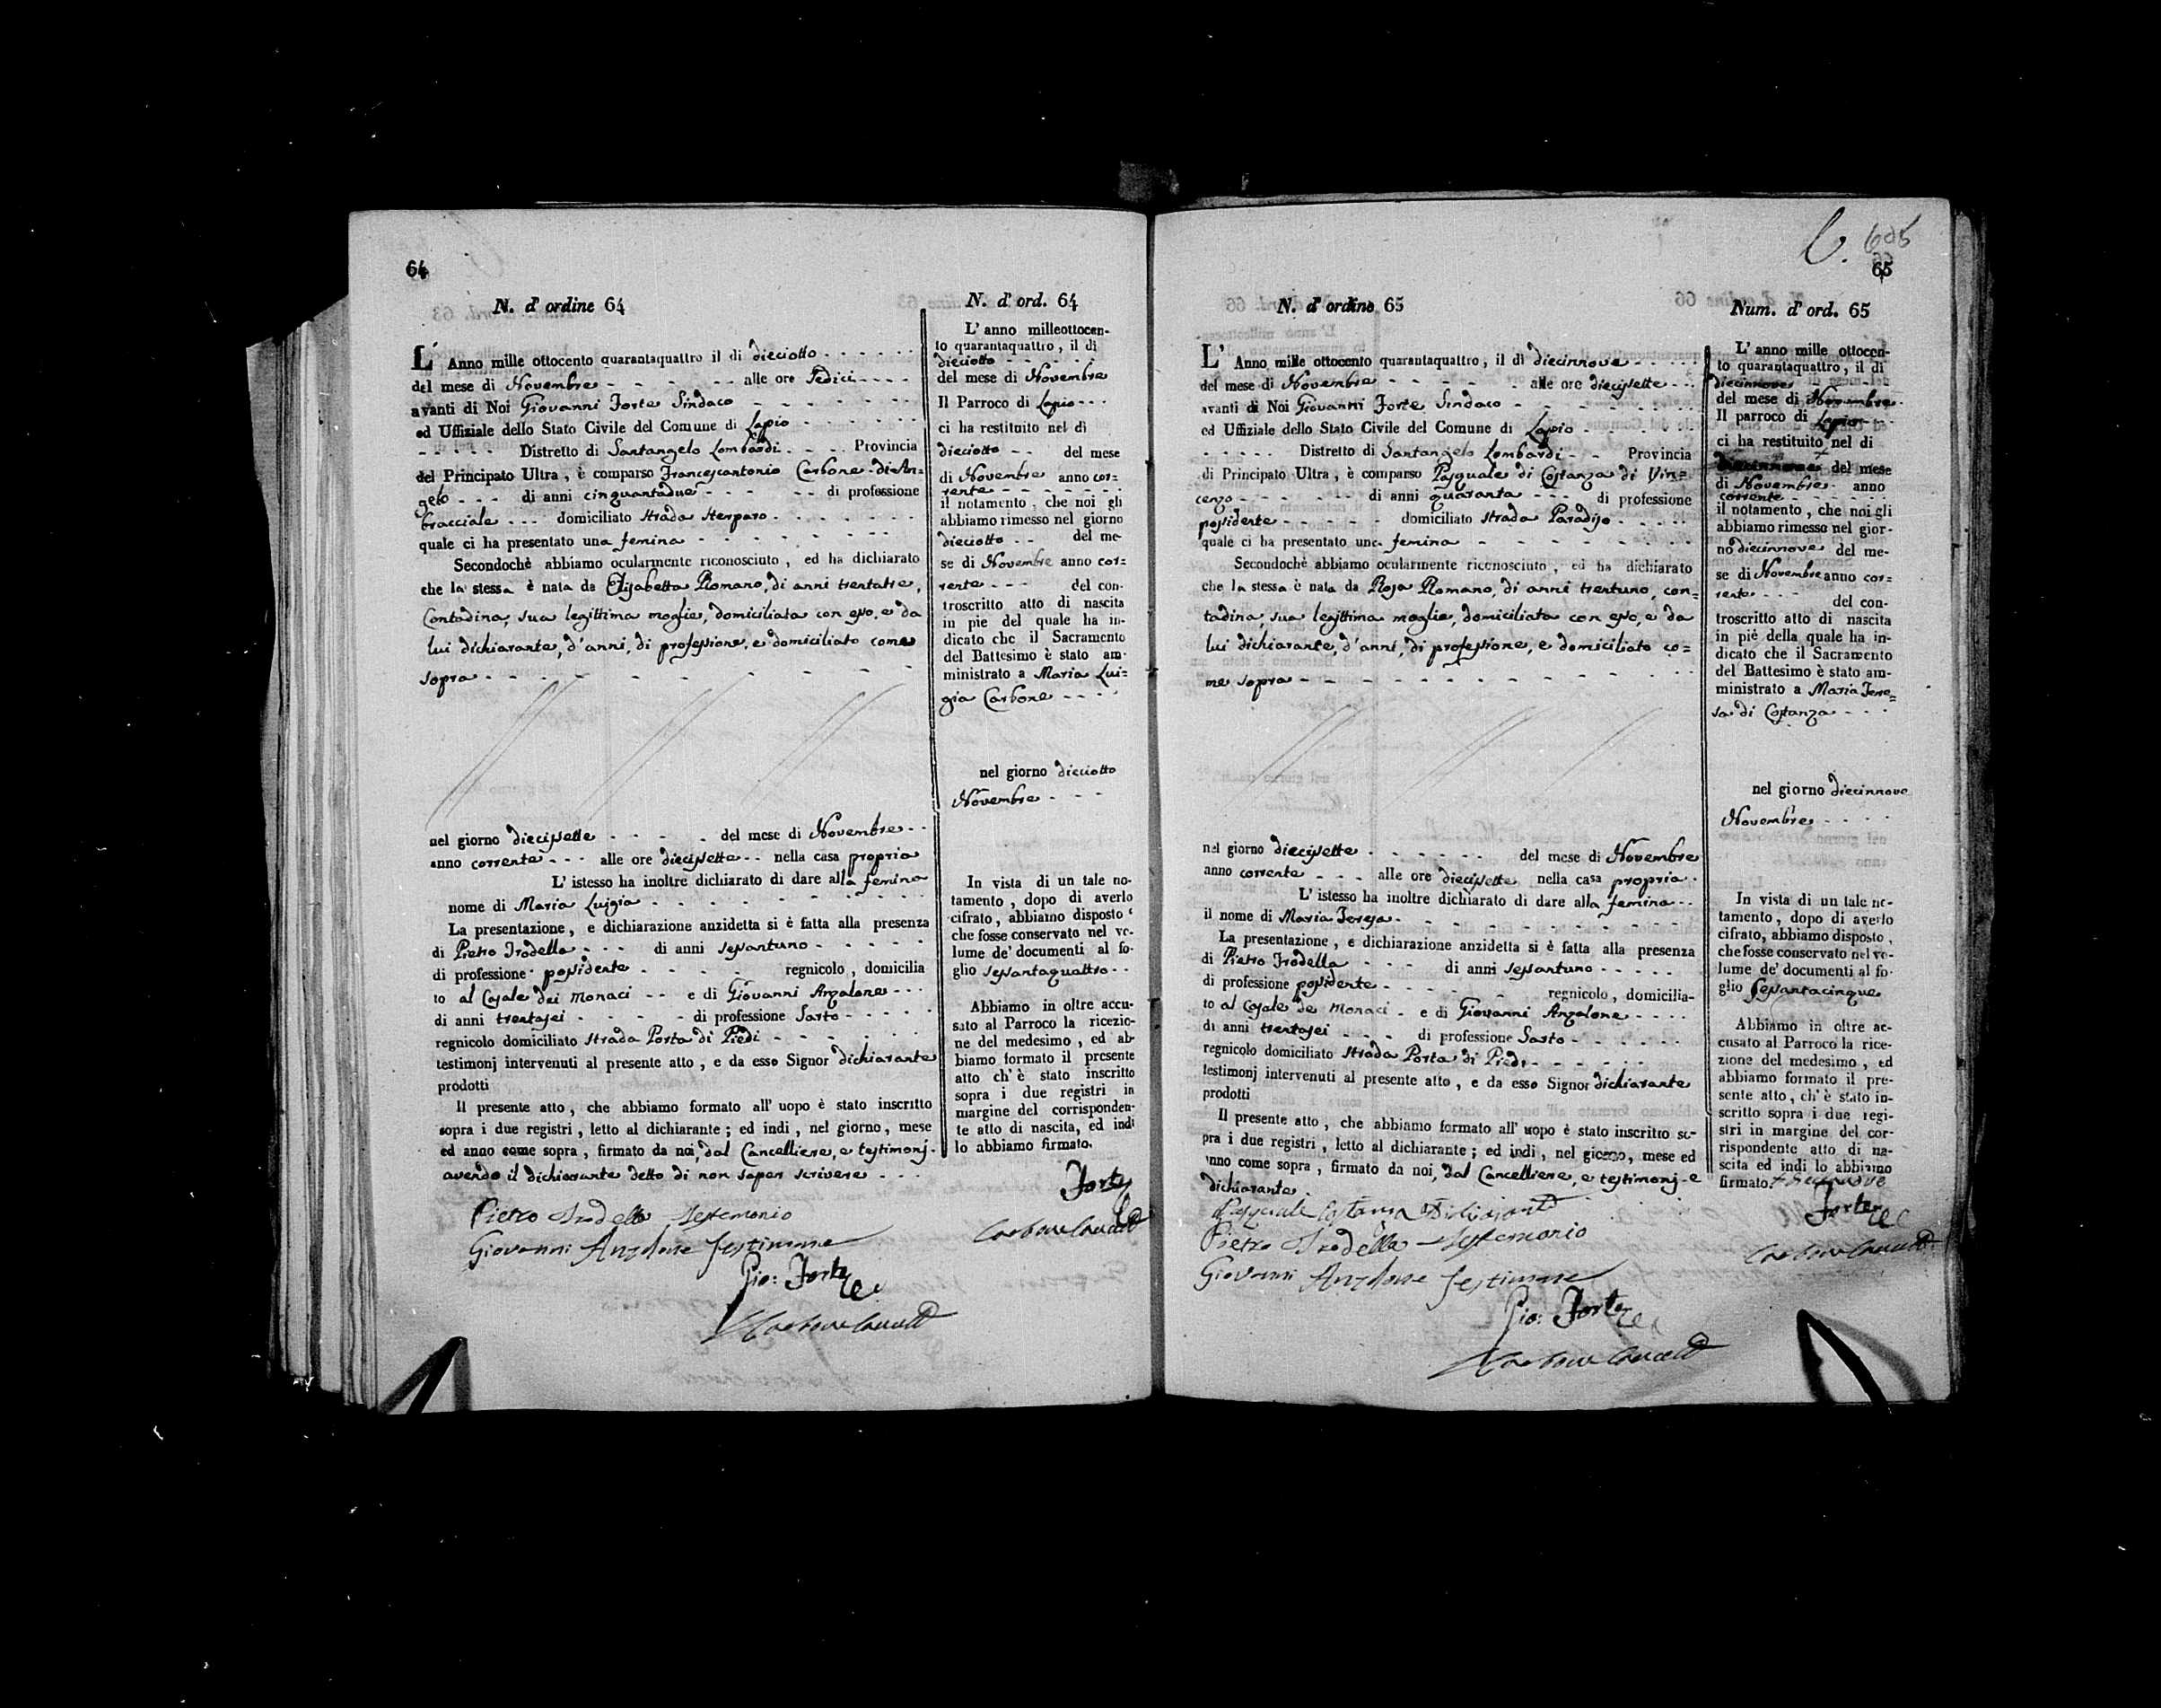 64
N. d' ordine 64
L' Anno mille ottocento quarantaquattro il di dieciotto
del mese di Novembre alle ore Sedici
avanti di Noi Giovanni Forte Sindaco
ed Uffiziale dello Stato Civile del Comune di Lapio
Distretto di Santangelo Lombardi Provincia
del Principato Ultra, è comparso Francescantonio Carbone di An=
gelo di anni cinquantadue di professione
bracciale domiciliato Strada Sterparo
quale ci ha presentato una femina
Secondochè abbiamo ocularmente riconosciuto, ed ha dichiarato
che la stessa è nata da Elisabetta Romano, di anni trentatre,
Contadina, sua legittima moglie, domiciliata con esso, e da
lui dichiarante, d'anni, di professione, e domiciliato come
sopra
nel giorno diecissette del mese di Novembre
anno corrente alle ore diecissette nella casa propria
L' istesso ha inoltre dichiarato di dare alla femina
nome di Maria Luigia
La presentazione, e dichiarazione anzidetta si è fatta alla presenza
di Pietro Trodella di anni sessantuno
di professione possidente regnicolo, domicilia
to al Casale dei Monaci e di Giovanni Anzalone
di anni trentasei di professione Sarto
regnicolo domiciliato Strada Porta di Piedi
testimonj intervenuti al presente atto, e da esso Signor dichiarante
prodotti
Il presente atto, che abbiamo formato all' uopo è stato inscritto
sopra i due registri, letto al dichiarante; ed indi, nel giorno, mese
ed anno come sopra, firmato da noi, dal Cancelliere, e testimonj.
avendo il dichiarante detto di non saper scrivere
Pietro Trodella Testemonio
Giovanni Anzalone Testimone
Gio: Forte
Carbone Canc.
N. d' ord. 64
L' anno milleottocen-
to quarantaquattro, il di
dieciotto
del mese di Novembre
Il Parroco di Lapio
ci ha restituito nel di
dieciotto del mese
di Novembre anno cor=
rente
il notamento, che noi gli
abbiamo rimesso nel giorno
dieciotto del me-
se di Novembre anno cor=
rente del con-
troscritto atto di nascita
in piè del quale ha in-
dicato che il Sacramento
del Battesimo è stato am-
ministrato a Maria Lui=
gia Carbone
nel giorno dieciotto
Novembre
In vista di un tale no-
tamento, dopo di averlo
cifrato, abbiamo disposto
che fosse conservato nel vo-
lume de' documenti al fo-
glio sessantaquattro
Abbiamo in oltre accu-
sato al Parroco la ricezio-
ne del medesimo, ed ab-
biamo formato il presente
atto ch' è stato inscritto
sopra i due registri in
margine del corrisponden-
te atto di nascita, ed indi
lo abbiamo firmato.
Forte
Carbone Canc.
65
N. d' ordine 65
L' Anno mille ottocento quarantaquattro, il di diecinnove
del mese di Novembre alle ore diecissette
avanti di Noi Giovanni Forte Sindaco
ed Uffiziale dello Stato Civile del Comune di Lapio
Distretto di Santangelo Lombardi Provincia
di Principato Ultra, è comparso Pasquale di Costanza di Vin=
cenzo di anni quaranta di professione
possidente domiciliato Strada Paradiso
quale ci ha presentato una femina
Secondochè abbiamo ocularmente riconosciuto, ed ha dichiarato
che la stessa è nata da Rosa Romano, di anni trentuno, con=
tadina, sua legittima moglie, domiciliata con esso, e da
lui dichiarante, d'anni, di professione, e domiciliato co=
me sopra
nel giorno diecissette del mese di Novembre
anno corrente alle ore diecissette nella casa propria
L' istesso ha inoltre dichiarato di dare alla femina
il nome di Maria Teresa
La presentazione, e dichiarazione anzidetta si è fatta alla presenza
di Pietro Trodella di anni sessantuno
di professione possidente regnicolo, domicilia-
to al Casale de Monaci e di Giovanni Anzalone
di anni trentasei di professione Sarto
regnicolo domiciliato Strada Porta di Piedi
testimonj intervenuti al presente atto, e da esso Signor dichiarante
prodotti
Il presente atto, che abbiamo formato all' uopo è stato inscritto so-
pra i due registri, letto al dichiarante; ed indi, nel giorno, mese ed
anno come sopra, firmato da noi, dal Cancelliere, e testimonj e
dichiarante.
Pasquale Costanza
Pietro Trodella Testemonio
Giovanni Anzalone Testimone
Gio: Forte
Carbone Canc.
Num. d' ord. 65
L' anno mille ottocen-
to quarantaquattro, il di
diecinnove
del mese di Novembre
Il parroco di Lapio
ci ha restituito nel di
del mese
di Novembre anno
corrente
il notamento, che noi gli
abbiamo rimesso nel gior-
no diecinnove del me-
se di Novembre anno cor=
rente del con-
troscritto atto di nascita
in piè della quale ha in-
dicato che il Sacramento
del Battesimo è stato am-
ministrato a Maria Tere=
sa di Costanza
nel giorno diecinnove
Novembre
In vista di un tale no-
tamento, dopo di averlo
cifrato, abbiamo disposto,
che fosse conservato nel vo-
lume de' documenti al fo-
glio Sessantacinque
Abbiamo in oltre ac-
cusato al Parroco la rice-
zione del medesimo, ed
abbiamo formato il pre-
sente atto, ch' è stato in-
scritto sopra i due regi-
stri in margine del cor-
rispondente atto di na-
scita ed indi lo abbiamo
firmato.
Forte
Carbone Canc.